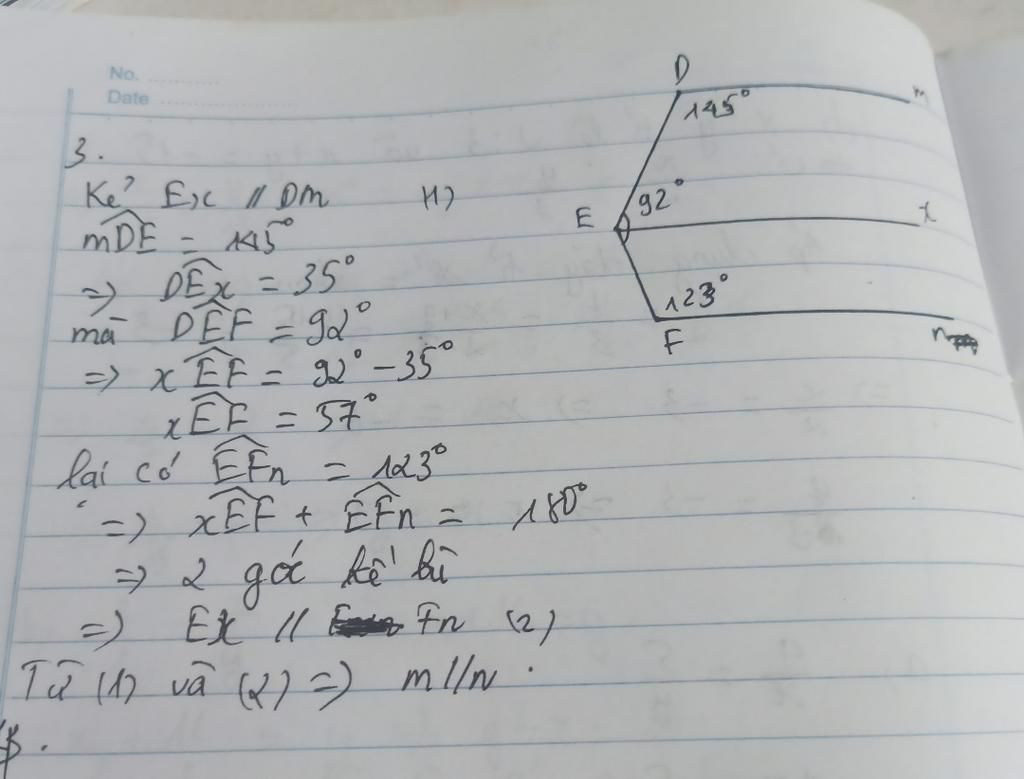 No. ............
Date ........................
3.
Kẻ Ex // Dm (1)
mDE = 145°
=> DEx = 35°
mà DEF = 92°
=> xEF = 92° - 35°
xEF = 57°
lại có EFn = 123°
=> xEF + EFn = 180°
=> 2 góc kề bù
=> Ex // Fn (2)
Từ (1) và (2) => m//n.
D
m
145°
E
92°
x
123°
F
n